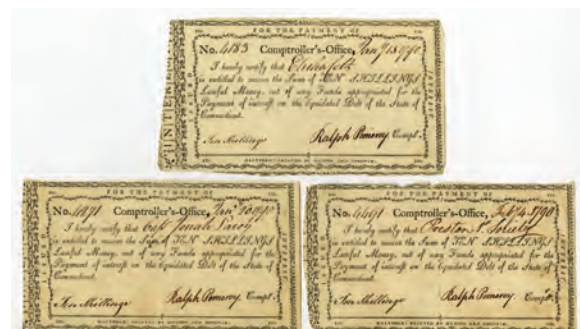 FOR THE PAYMENT OF
INTERE
No. 4183 Comptroller's-Office, 1790
I hereby certify that Elisha Colt
is entitled to receive the Sum of TEN SHILLINGS
Lawful Money, out of any Funds appropriated for the
Payment of interest on the liquidated Debt of the State of
Connecticut.
Ten Shillings Ralph Pomeroy Compt.
HARTFORD: PRINTED BY HUDSON AND GOODWIN.
FOR THE PAYMENT OF
No. 4871 Comptroller's-Office, 1790
I hereby certify that Capt Jonah
is entitled to receive the Sum of TEN SHILLINGS
Lawful Money, out of any Funds appropriated for the
Payment of interest on the liquidated Debt of the State of
Connecticut.
Ten Shillings Ralph Pomeroy Compt.
HARTFORD: PRINTED BY HUDSON AND GOODWIN.
FOR THE PAYMENT OF
No. Comptroller's-Office, Feb 4 1790
I hereby certify that Preston Society
is entitled to receive the Sum of TEN SHILLINGS
Lawful Money, out of any Funds appropriated for the
Payment of interest on the liquidated Debt of the State of
Connecticut.
Ten Shillings Ralph Pomeroy Compt.
HARTFORD: PRINTED BY HUDSON AND GOODWIN.